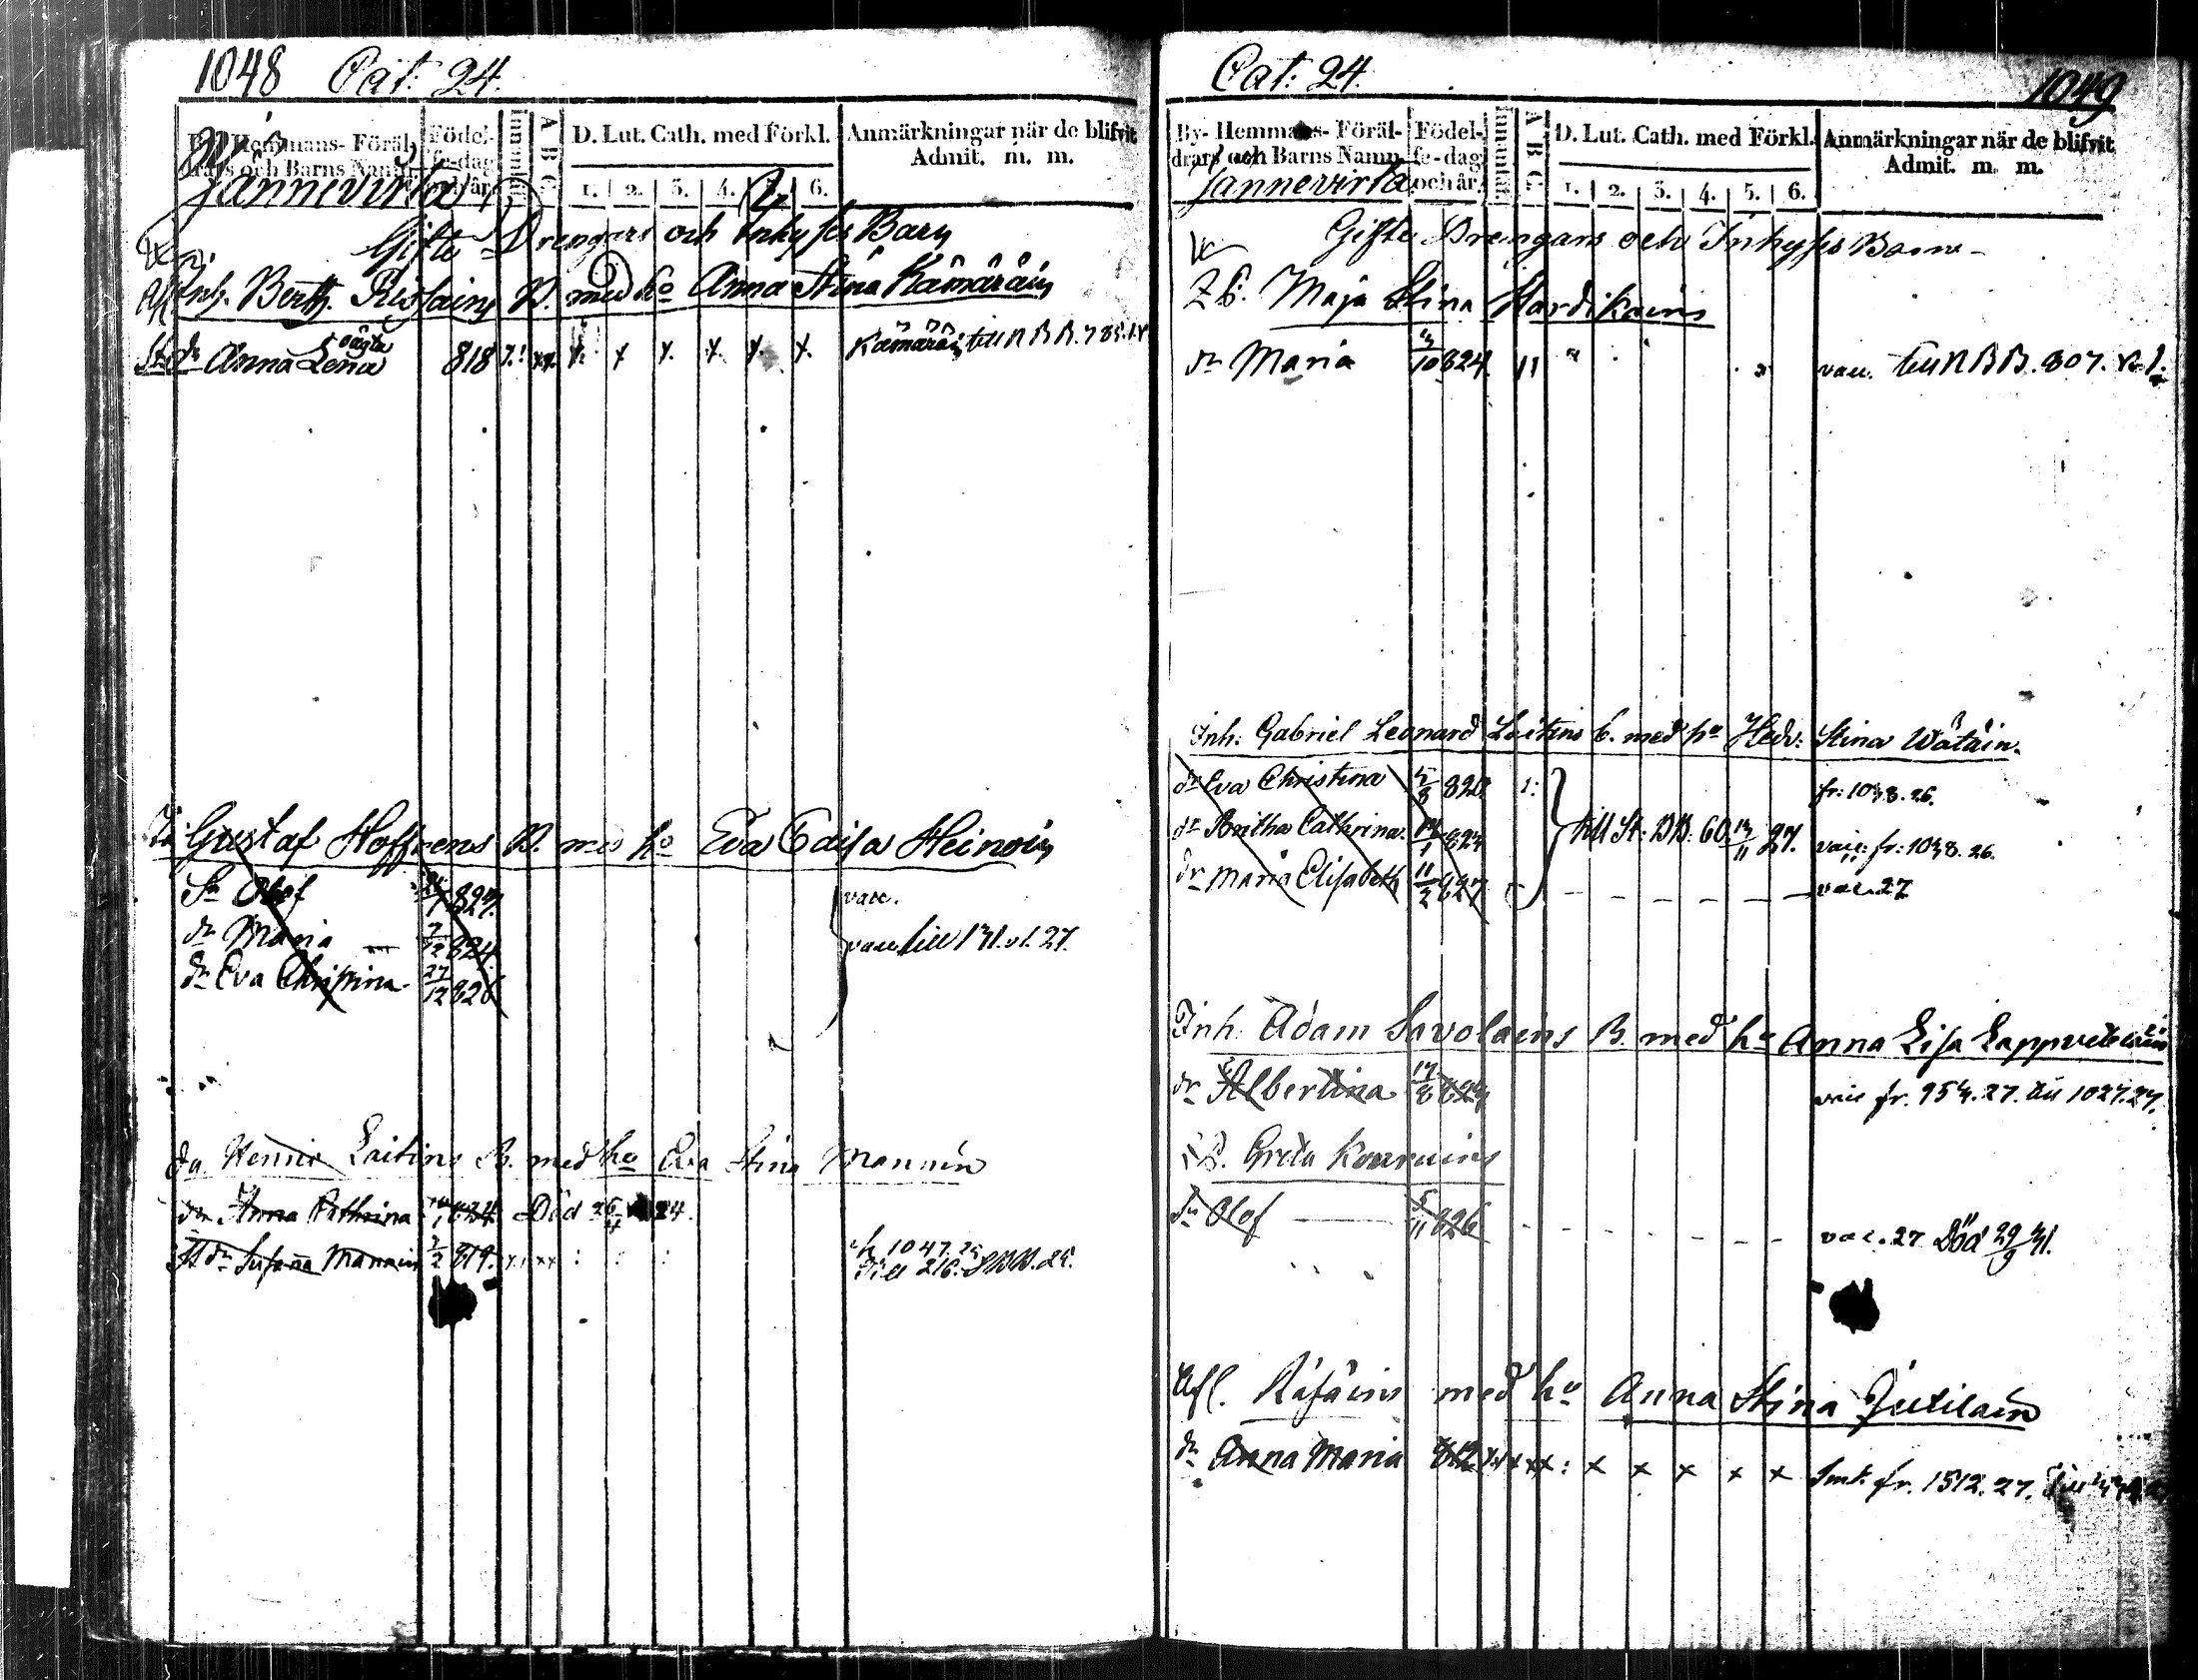 1048 Cat: 24.
By- Hemmans- Föräldrars och Barns Namn.
Födelse-dag och år.
A B C
D. Lut. Cath. med Förkl.
1. 2. 3. 4. 5. 6.
Anmärkningar när de blifvit Admit. m. m.
Jännevirta
Gifte Drengars och Inhyses Barn
Inh. Berth. B. med ho Anna Stina Kämäräin
dr Anna Lena oägta 818 x x x x x x Kämäräin till
Gustaf Hoffrens B. med ho Eva Caisa Heinoin
Sn Olof 827. vacc.
dr Maria 7/12 824. vacc till 131. 27.
dr Eva Christina 27/12 826
do Laitins B. med ho Eva Stina Mannin
dr Anna Cathrina 824 Död 26/4 24.
dr Susanna Mannin 2/2 819. 1047. 25
till 216. 25.
Cat: 24. 1049
By- Hemmans- Föräldrars och Barns Namn.
Födelse-dag och år.
A B C
D. Lut. Cath. med Förkl.
1. 2. 3. 4. 5. 6.
Anmärkningar när de blifvit Admit. m. m.
Jännevirta
Gifte Drengars och Inhyses Barn
Maja Stina Hardikains
dr Maria /10 824. vacc. till 807.
Inh: Gabriel Leonard Laitins B. med ho Hedv: Stina Wätäin.
dr Eva Christina 820 fr: 1038. 26.
dr Britha Cathrina 824 till St: 60 /11 27. vacc: fr: 1038. 26.
dr Maria Elisabeth 11/2 827 vac. 27
Inh: Adam Savolains B. med ho Anna Lisa Lappveteläin
dr Albertina 17/8 824 vac fr. 954. 27. till 1027. 27.
B. Greta
Olof 5/11 826 vac. 27 Död 29/9 31.
Afl. Räsäins med ho Anna Stina Jutilain
dr Anna Maria 812 x x x x x fr. 1512. 27.